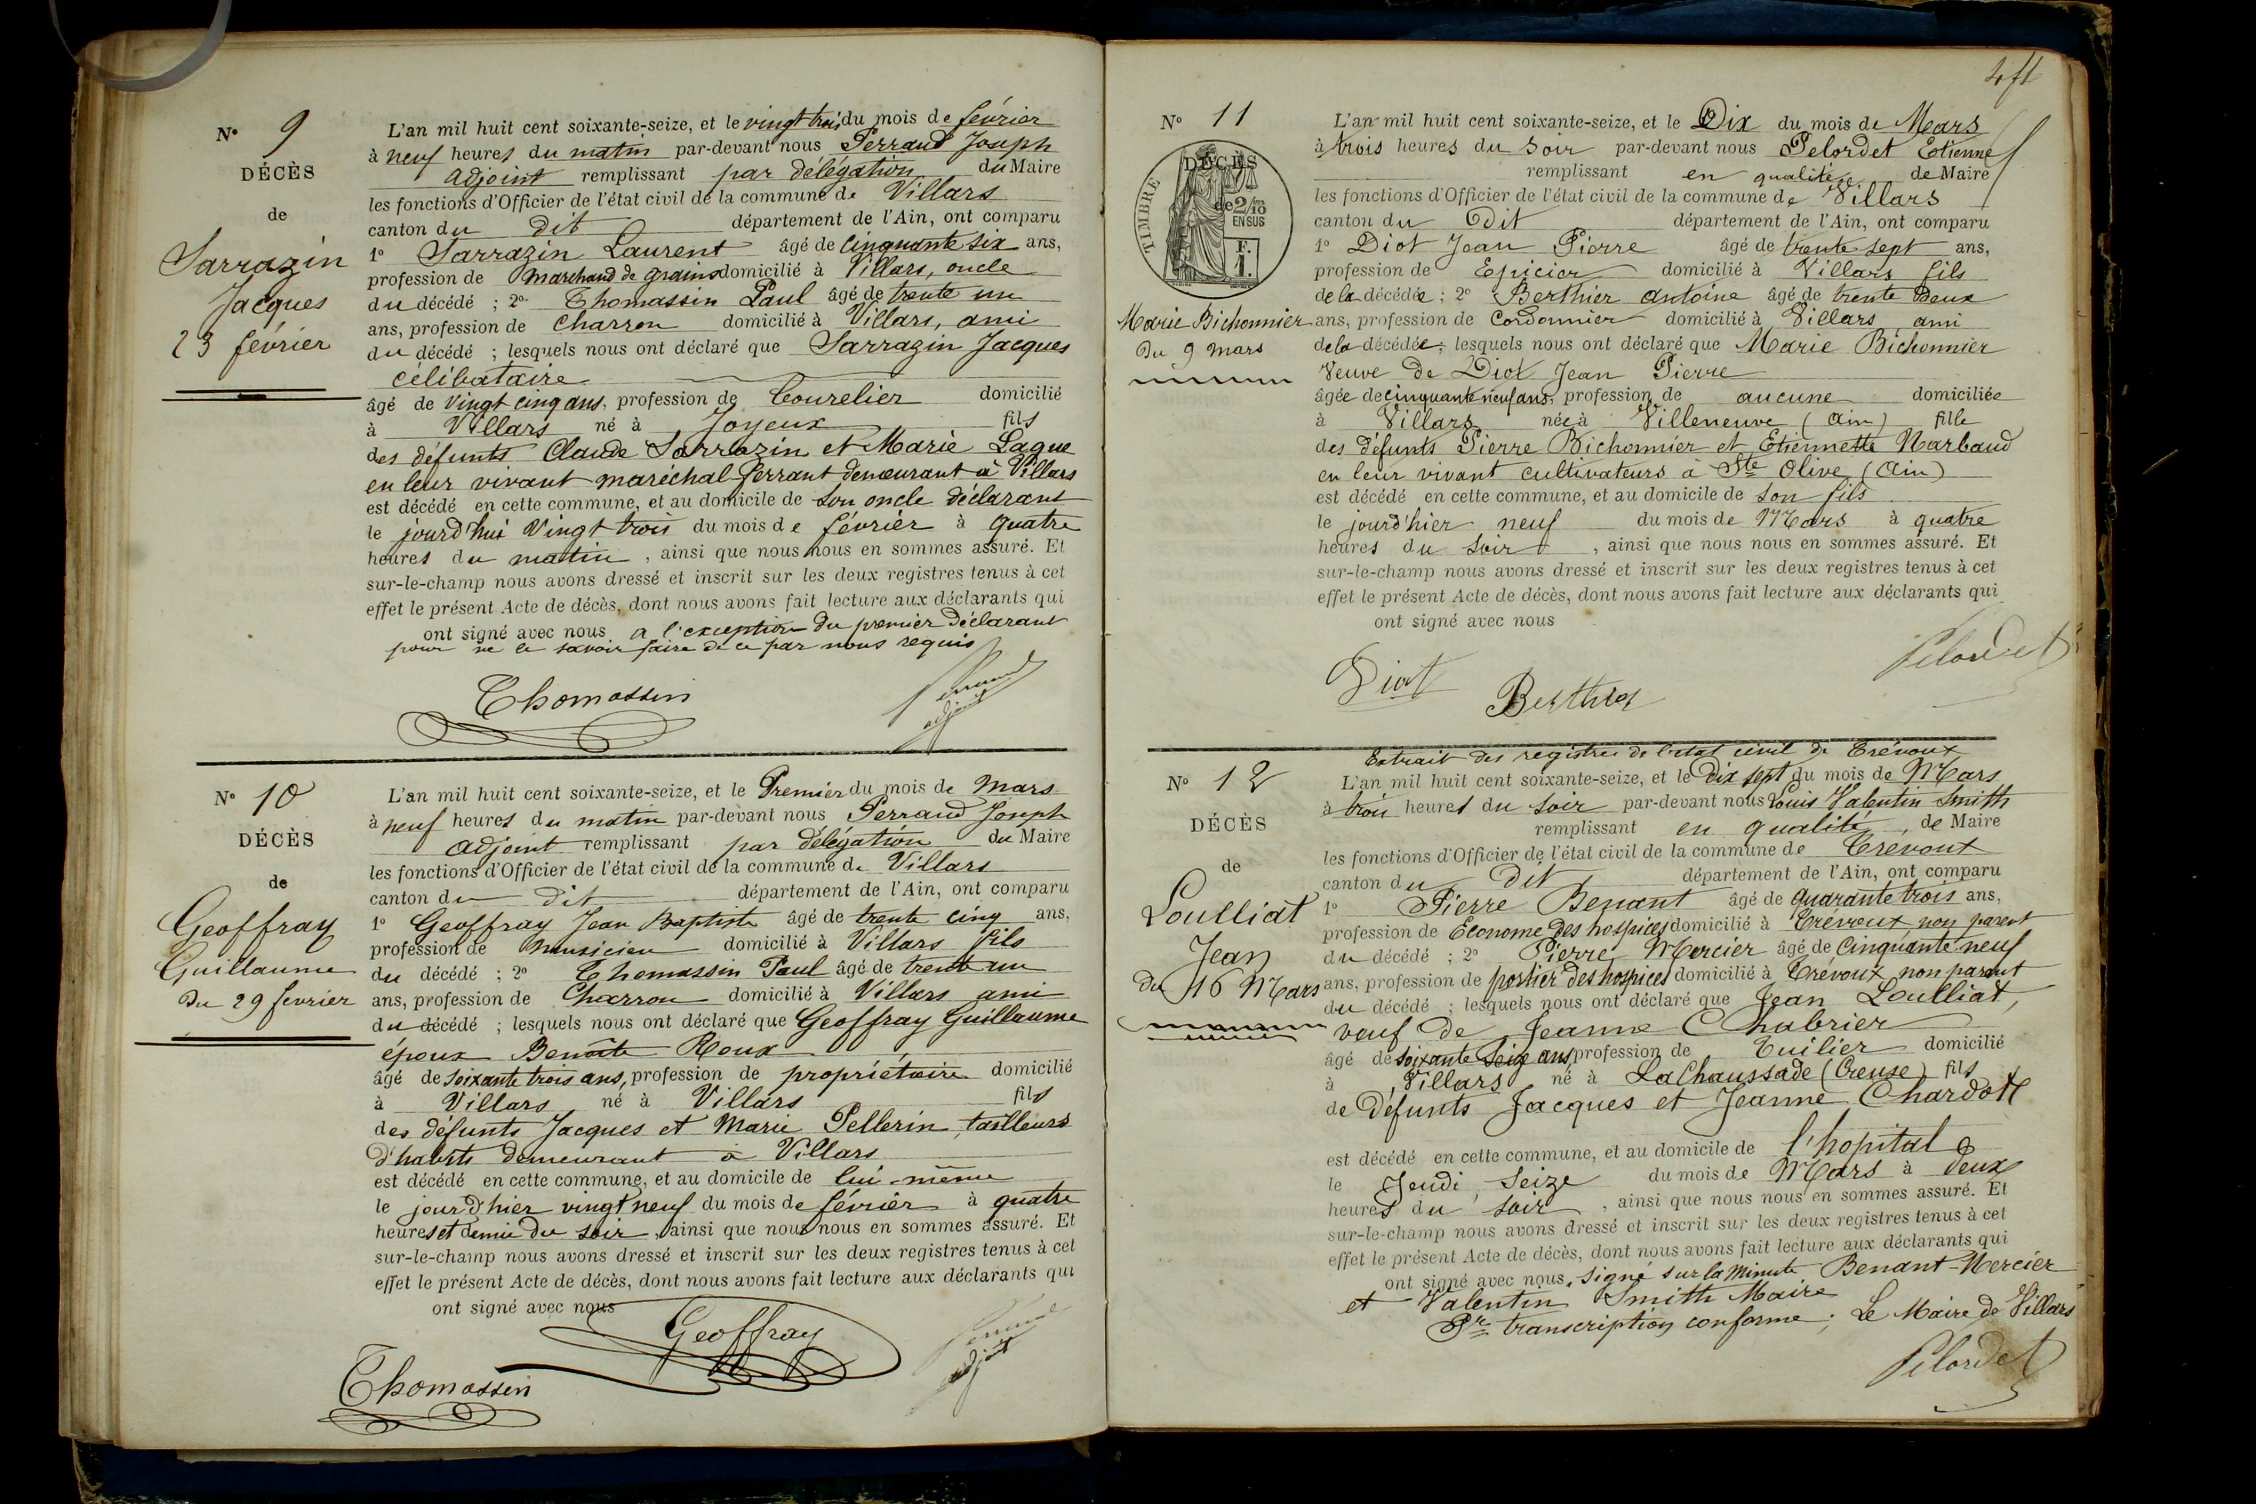 N° 9
DÉCÈS
de
Sarrazin
Jacques
23 février
L'an mil huit cent soixante-seize, et le vingt trois du mois de février
à neuf heures du matin par-devant nous Perraud Joseph
adjoint remplissant par délégation du Maire
les fonctions d'Officier de l'état civil de la commune de Villars
canton du dit département de l'Ain, ont comparu
1° Sarrazin Laurent âgé de cinquante six ans,
profession de Marchand de grains domicilié à Villars, oncle
du décédé ; 2° Thomassin Paul âgé de trente un
ans, profession de Charron domicilié à Villars, ami
du décédé ; lesquels nous ont déclaré que Sarrazin Jacques
célibataire
âgé de vingt cinq ans, profession de Bourelier domicilié
à Villars né à Joyeux fils
des défunts Claude Sarrazin et Marie Laque
en leur vivant maréchal ferrant demeurant à Villars
est décédé en cette commune, et au domicile de son oncle déclarant
le jourd'hui Vingt trois du mois de février à quatre
heures du matin, ainsi que nous nous en sommes assuré. Et
sur-le-champ nous avons dressé et inscrit sur les deux registres tenus à cet
effet le présent Acte de décès, dont nous avons fait lecture aux déclarants qui
ont signé avec nous a l'exception du premier déclarant
pour ne le savoir faire de ce par nous requis
Thomassin
Perraud
adjoint
N° 10
DÉCÈS
de
Geoffray
Guillaume
Du 29 fevrier
L'an mil huit cent soixante-seize, et le Premier du mois de Mars
à neuf heures du matin par-devant nous Perraud Joseph
adjoint remplissant par délégation du Maire
les fonctions d'Officier de l'état civil de la commune de Villars
canton du dit département de l'Ain, ont comparu
1° Geoffray Jean Baptiste âgé de trente cinq ans,
profession de musicien domicilié à Villars fils
du décédé ; 2° Thomassin Paul âgé de trente un
ans, profession de Charron domicilié à Villars ami
du décédé ; lesquels nous ont déclaré que Geoffray Guillaume
époux Benoîte Roux
âgé de soixante trois ans, profession de propriétaire domicilié
à Villars né à Villars fils
des défunts Jacques et Marie Pellerin, tailleurs
d'habits demeurant à Villars
est décédé en cette commune, et au domicile de lui-même
le jourd'hier vingt neuf du mois de février à quatre
heures et demie du soir, ainsi que nous nous en sommes assuré. Et
sur-le-champ nous avons dressé et inscrit sur les deux registres tenus à cet
effet le présent Acte de décès, dont nous avons fait lecture aux déclarants qui
ont signé avec nous
Geoffray
Perraud
adjoint
Thomassin
N° 11
DÉCÈS
TIMBRE
de 2/10
EN SUS
F.
1.
Marie Bichonnier
Du 9 mars
L'an mil huit cent soixante-seize, et le Dix du mois de Mars
à trois heures du soir par-devant nous Pelordet Etienne
remplissant en qualité de Maire
les fonctions d'Officier de l'état civil de la commune de Villars
canton du Dit département de l'Ain, ont comparu
1° Diot Jean Pierre âgé de trente sept ans,
profession de Epicier domicilié à Villars fils
de la décédée ; 2° Berthier Antoine âgé de trente Deux
ans, profession de Cordonnier domicilié à Villars ami
de la décédée ; lesquels nous ont déclaré que Marie Bichonnier
Veuve de Diot Jean Pierre
âgée de cinquante neuf ans, profession de aucune domiciliée
à Villars née à Villeneuve (Ain) fille
des défunts Pierre Bichonnier et Etiennette Narbaud
en leur vivant cultivateurs à Ste Olive (Ain)
est décédé en cette commune, et au domicile de son fils
le jourd'hier neuf du mois de Mars à quatre
heures du soir, ainsi que nous nous en sommes assuré. Et
sur-le-champ nous avons dressé et inscrit sur les deux registres tenus à cet
effet le présent Acte de décès, dont nous avons fait lecture aux déclarants qui
ont signé avec nous
Pelordet
Diot
Berthier
N° 12
DÉCÈS
de
Loulliat
Jean
Du 16 Mars
Extrait des registres de l'état civil de Trévoux
L'an mil huit cent soixante-seize, et le Dix sept du mois de Mars
à trois heures du soir par-devant nous Louis Valentin Smith
remplissant en qualité, de Maire
les fonctions d'Officier de l'état civil de la commune de Trévoux
canton du Dit département de l'Ain, ont comparu
1° Pierre Benant âgé de quarante trois ans,
profession de Econome des hospices domicilié à Trévoux non parent
du décédé ; 2° Pierre Mercier âgé de cinquante neuf
ans, profession de portier des hospices domicilié à Trévoux non parent
du décédé ; lesquels nous ont déclaré que Jean Loulliat,
veuf de Jeanne Chabrier
âgé de soixante Seize ans profession de Tuilier domicilié
à Villars né à La Chaussade (Creuse) fils
de Défunts Jacques et Jeanne Chardott
est décédé en cette commune, et au domicile de l'hopital
le Jeudi, Seize du mois de Mars à deux
heures du soir, ainsi que nous nous en sommes assuré. Et
sur-le-champ nous avons dressé et inscrit sur les deux registres tenus à cet
effet le présent Acte de décès, dont nous avons fait lecture aux déclarants qui
ont signé avec nous. Signé sur la minute Benant-Mercier
et Valentin Smith Maire
Pr transcription conforme ; Le Maire de Villars
Pelordet